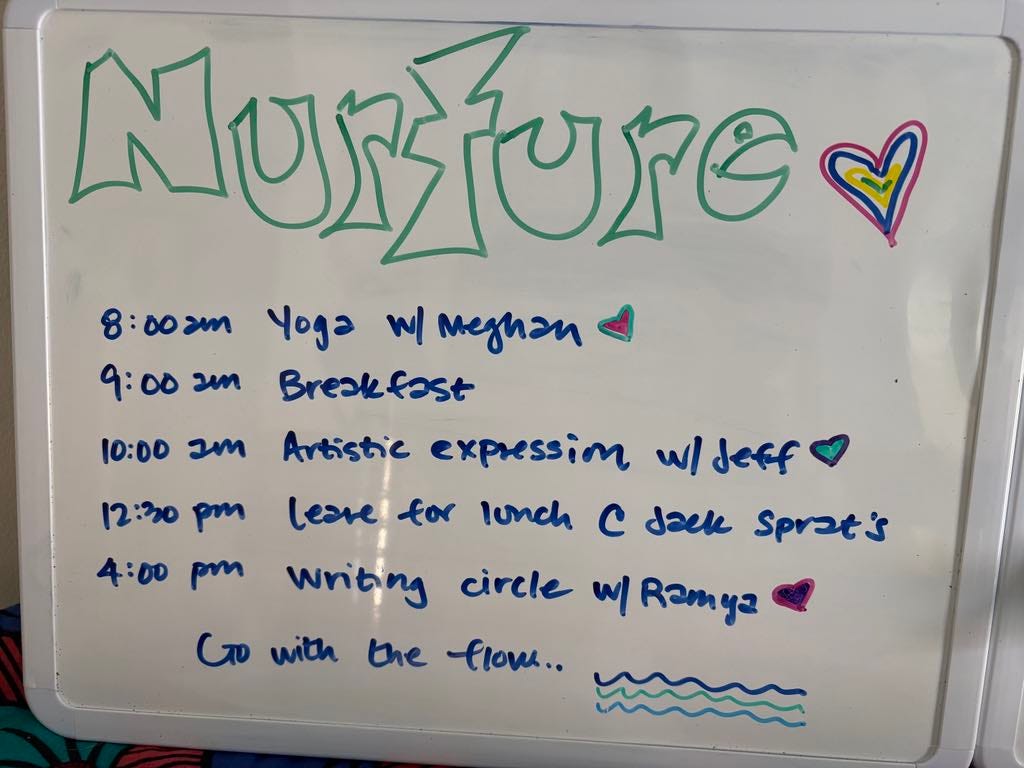 Nurture
8:00am Yoga w/ Meghan
9:00 am Breakfast
10:00 am Artistic expression w/ Jeff
12:30 pm Leave for lunch C Jack Sprat's
4:00 pm Writing circle w/ Ramya
Go with the flow..